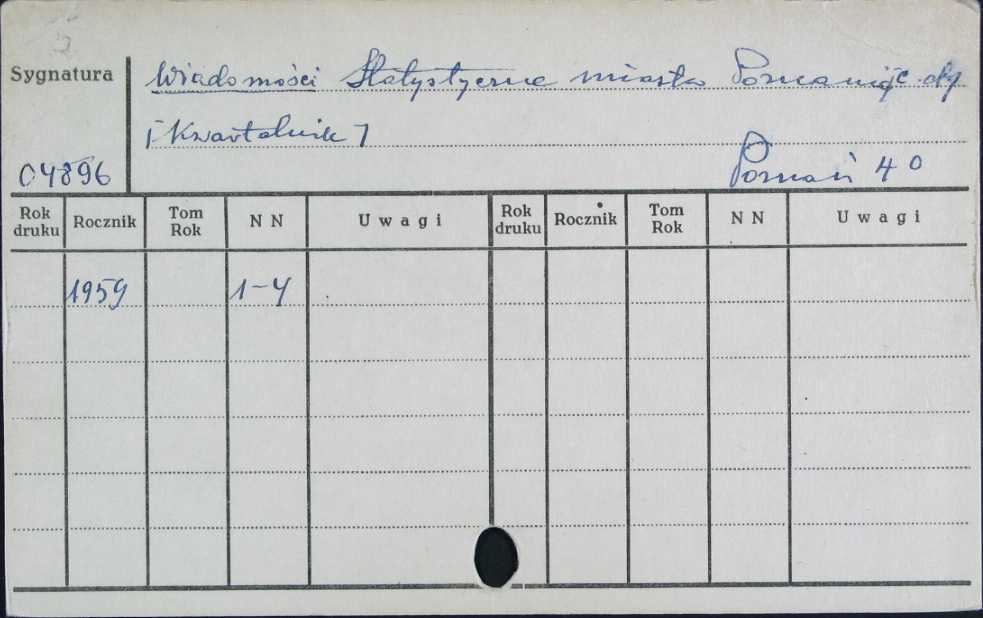 Sygnatura
Wiadomości Statystyczne miasta Poznania
[Kwartalnik]
04896
Poznań 4°
Rok druku Rocznik Tom Rok NN Uwagi Rok druku Rocznik Tom Rok NN Uwagi
1959 1-4